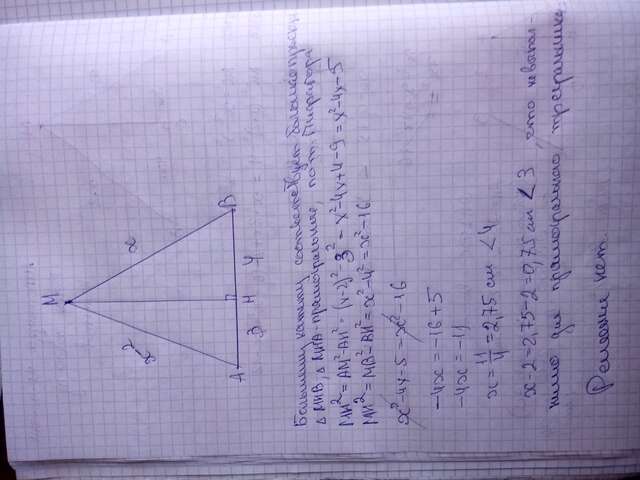 M
x-2
x
A
3
H
4
B
Большему катету соответствует большая
Δ MHB, Δ MHA - прямоугольные, по т. Пифагора
MH² = AM² - AH² = (x-2)² - 3² = x² - 4x + 4 - 9 = x² - 4x - 5
MH² = MB² - BH² = x² - 4² = x² - 16
x² - 4x - 5 = x² - 16
-4x = -16 + 5
-4x = -11
x = 11/4 = 2,75 см < 4
x - 2 = 2,75 - 2 = 0,75 см < 3 что невыпол-
нимо для прямоугольного треугольника
Решения нет.